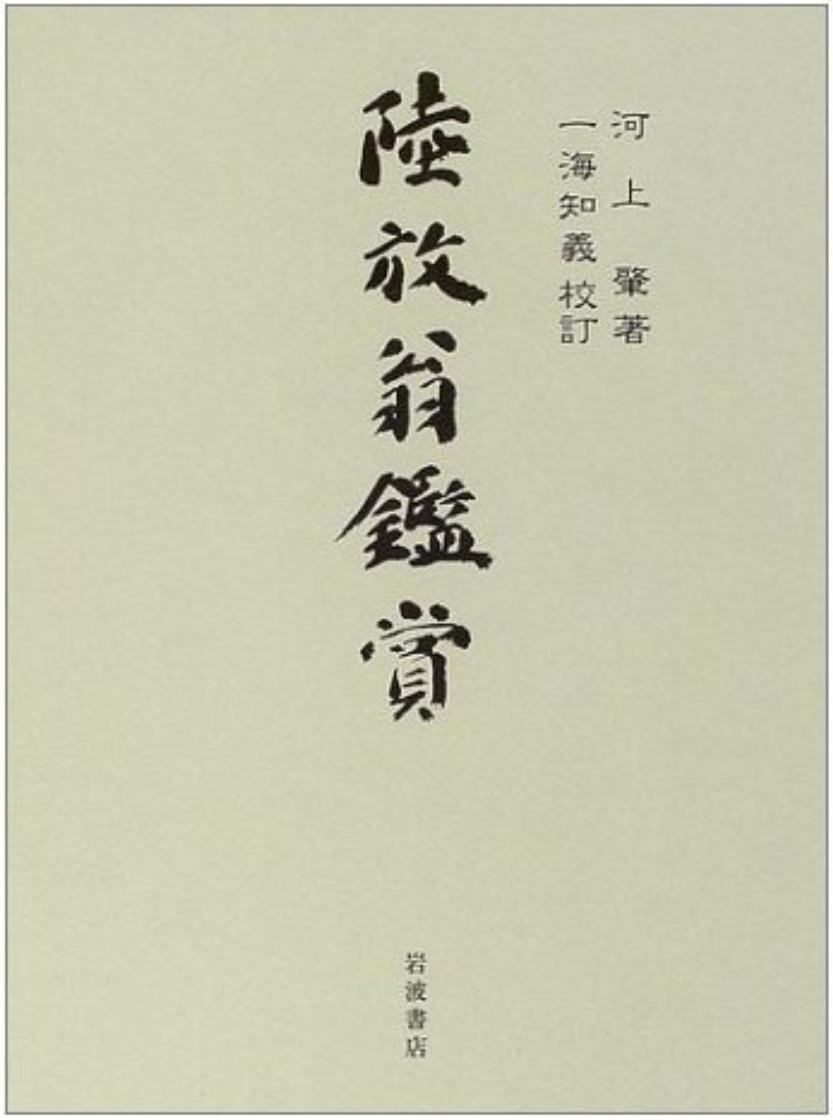 河上肇著
一海知義校訂
陸放翁鑑賞
岩波書店